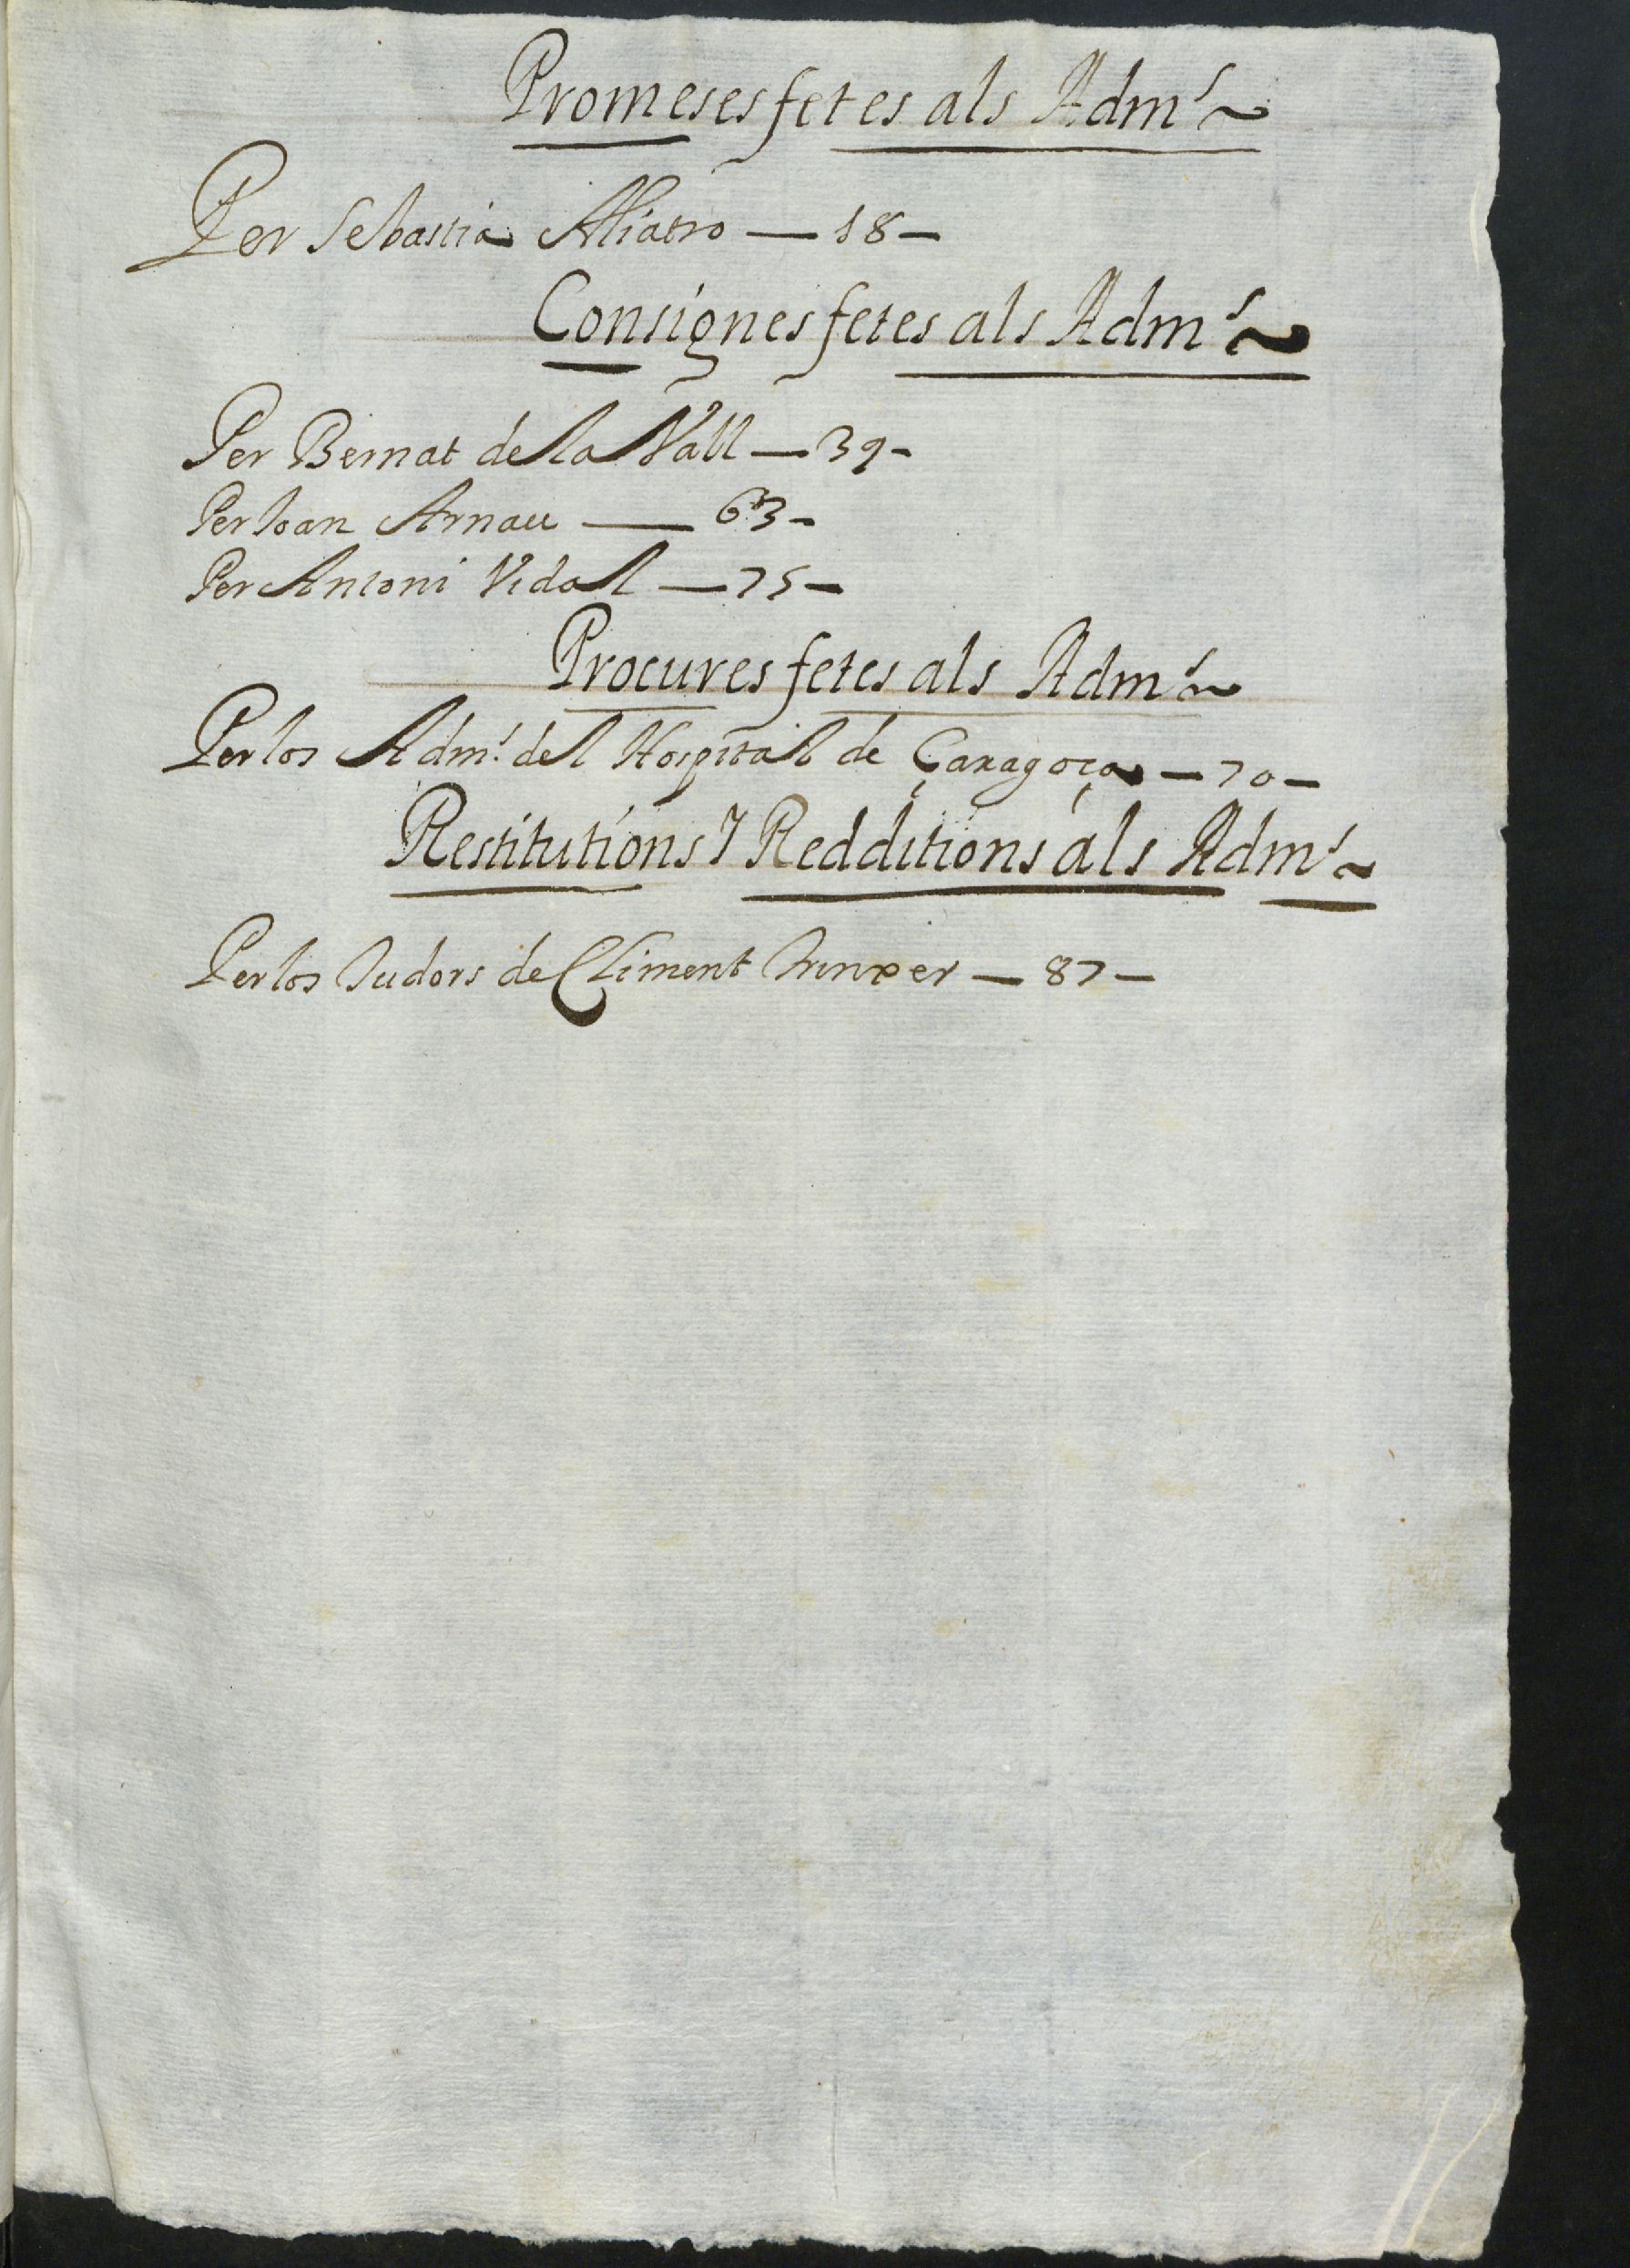 Promeses fetes als Adm.s ~
Per Sebastia Aliatro — 18 —
Consignes fetes als Adm.s ~
Per Bernat de la Vall — 39 -
Per Joan Arnau — 63 -
Per Antoni Vidal — 75 —
Procures fetes als Adm.s ~
Per los Adm.s del Hospital de Çaragoça — 70 —
Restitutions y Redditions als Adm.s ~
Per los Tudors de Climent — 87 —